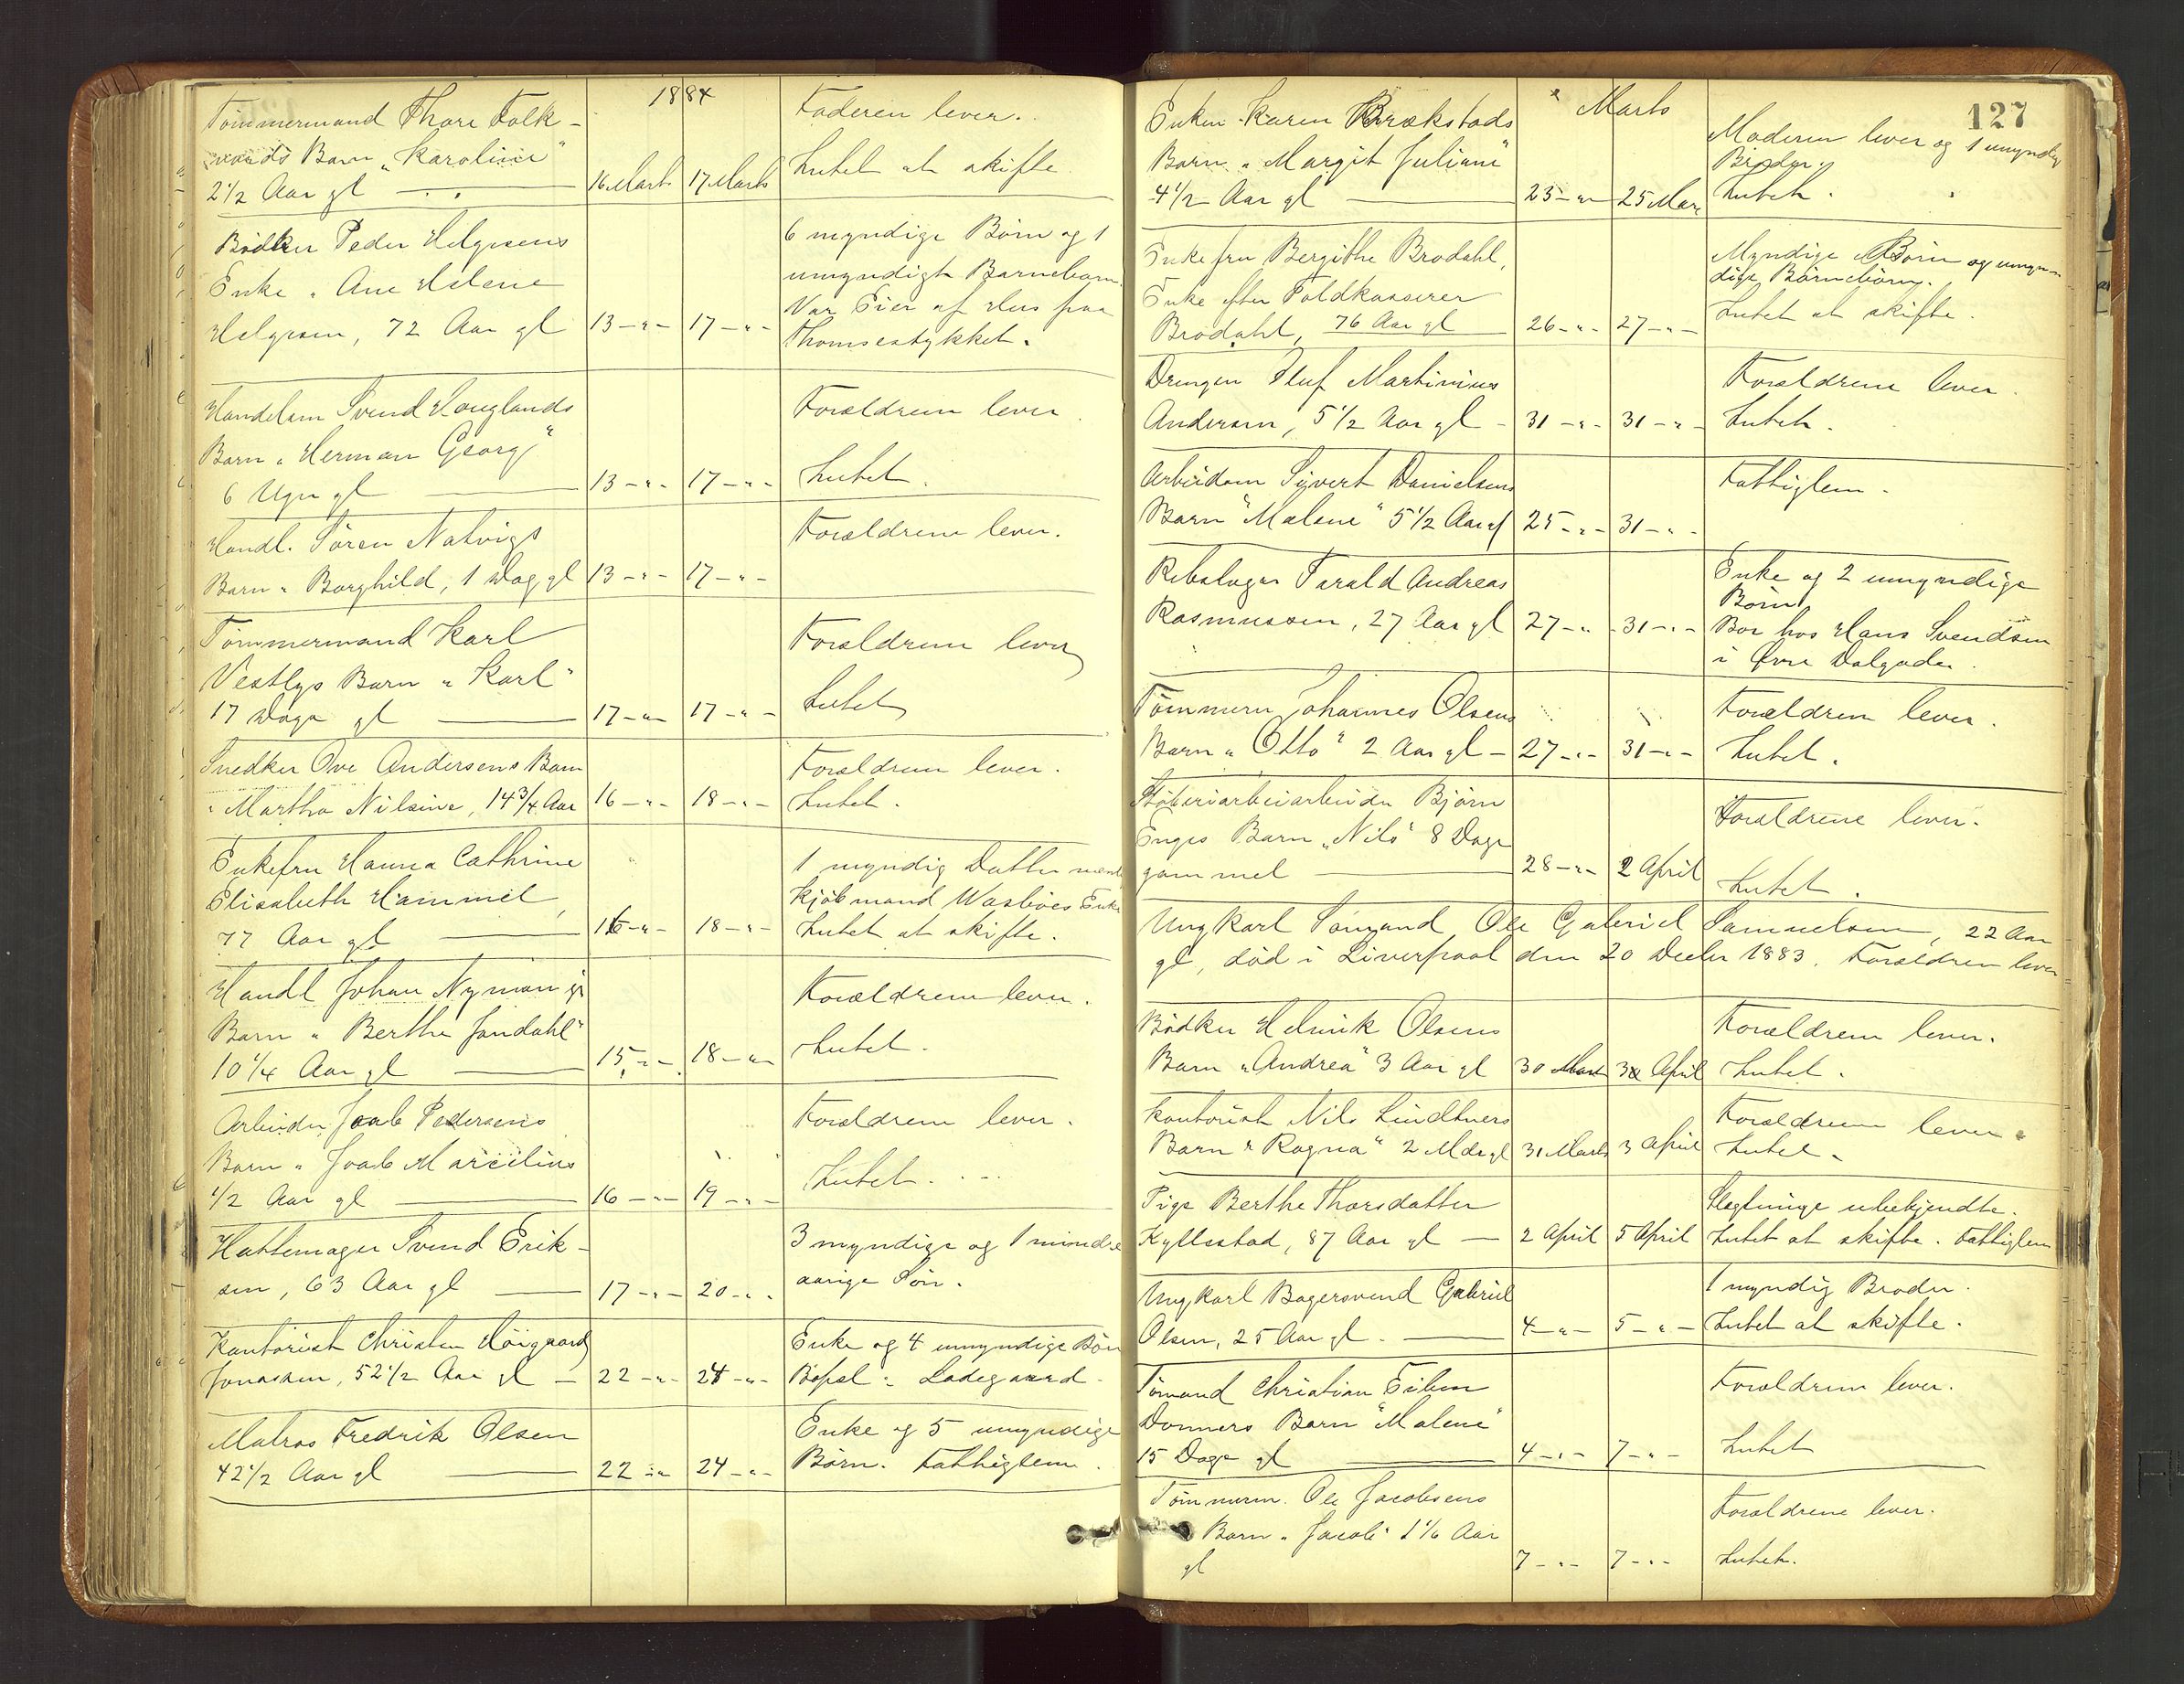 1884
Tømmermand Thore Folk-
vords Barn „Karoline"
2 1/2 Aar gl — 16 Marts 17 Marts
Faderen lever.
Intet at skifte
Bødker Peder Helgesens
Enke „ Ane Helene
Helgesen, 72 Aar gl 13 –„– 17 –„–
6 myndige Børn og 1
umyndigt Barnebarn.
Var Eier af Hus paa
Thomsestykket.
Handelsm Svend Houglands
Barn „Herman Georg"
6 Uger gl — 13 –„– 17 –„–
Forældrene lever
Intet.
Handl. Sören Natvigs
Barn „ Borghild, 1 Dag gl 13 –„– 17 –„–
Forældrene lever.
Tømmermand Karl
Vestlys Barn „Karl"
17 Dage gl — 17 –„– 17 –„–
Forældrene lever
Intet
Snedker Ove Andersens Barn
„Martha Nilsine, 14 3/4 Aar 16 –„– 18 –„–
Forældrene lever.
Intet.
Enkefru Hanna Cathrine
Elisabeth Hammel,
77 Aar gl — 16 –„– 18 –„–
1 myndig Datter
Kjöbmand Wasbøes Enke
Intet at skifte.
Handl Johan Nyman
Barn „ Berthe Jondahl"
10 1/4 Aar gl — 15 –„– 18 –„–
Forældrene lever.
Intet.
Arbeider Joab Pedersens
Barn „ Joab Marcelius
1/2 Aar gl — 16 –„– 19 –„–
Forældrene lever.
Intet.
Hattemager Svend Erik-
sen, 63 Aar gl — 17 –„– 20 –„–
3 myndige og 1 mindre
aarige Søn.
Kontorist Christen Høigaard
Jonassen, 52 1/2 Aar gl — 22 –„– 24 –„–
Enke og 4 umyndige Børn
Bopæl „ Ladegaard
Matros Fredrik Olsen
42 1/2 Aar gl — 22 –„– 24 –„–
Enke og 5 umyndige
Børn. Fattiglem.
127
Marts
Enken Karen Brækstads
Barn „ Margit Juliane"
4 1/2 Aar gl — 23 –„– 25 Mar
Moderen lever og 1 umyndig
Broder.
Intet.
Enkefru Bergithe Brodahl,
Enke efter Toldkasserer
Brodahl, 76 Aar gl 26 –„– 27 –„–
Myndige Børn og umyn-
dige Børnebørn.
Intet at skifte.
Drengen Oluf Martinius
Andersen, 5 1/2 Aar gl – 31 –„– 31 –„–
Forældrene lever.
Intet.
Arbeidsm Sivert Danielsens
Barn "Malene" 5 1/2 Aar gl 25 –„– 31 –„–
Fattiglem.
Rebslager Tarald Andreas
Rasmussen, 27 Aar gl 27 –„ 31 –„–
Enke og 2 umyndige
Børn
Bor hos Hans Svendsen
i Øvre Dalgade.
Tømmerm Johannes Olsens
Barn „Otto" 2 Aar gl – 27 –„– 31 –„–
Forældrene lever.
Intet.
Støberiarbeiarbeider Bjørn
Enges Barn „Nils" 8 Dage
gammel — 28 –„– 2 April
Forældrene lever.
Intet.
Ungkarl Sømand Ole Gabriel Samuelsen, 22 Aar
gl, död i Liverpool den 20 Decbr 1883. Forældren lever
Bödker Henrik Olsens
Barn „Andrea" 3 Aar gl 30 Marts 3 April
Forældrene lever.
Intet.
Kontorist Nils Lindtners
Barn „Ragna" 2 Mdr gl 31 Marts 3 April
Forældrene lever.
Intet.
Pige Berthe Thorsdatter
Kyllestad, 87 Aar gl — 2 April 5 April
Slægtninge ubekjendte.
Intet at skifte. Fattiglem
Ungkarl Bagersvend Gabriel
Olsen, 25 Aar gl. — 4 –„– 5 –„–
1 myndig Broder.
Intet at skifte.
Sømand Christian Eilen
Donners Barn "Malene"
15 Dage gl — 4 –„– 7 –„–
Forældrene lever.
Intet
Tømmerm. Ole Jacobsens
Barn „ Jacob" 1 1/6 Aar
gl 7 –„– 7 –„–
Forældrene lever.
Intet.